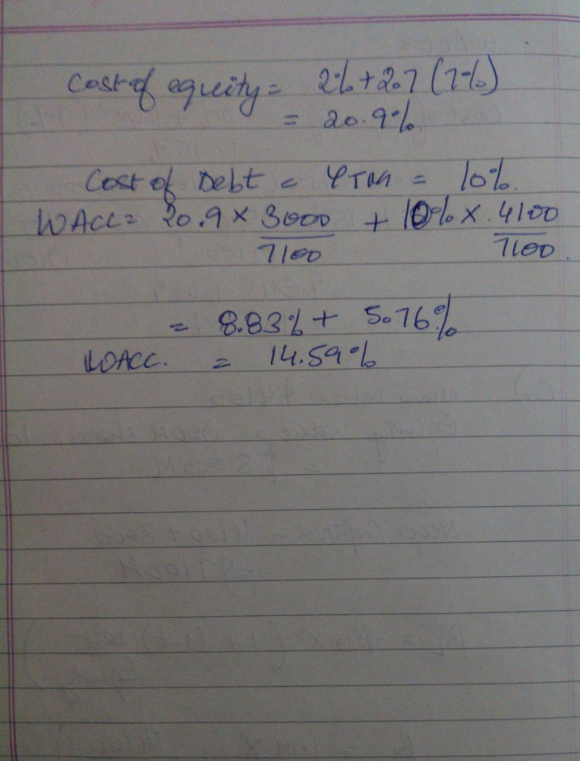 Cost of equity = 2% + 2.7 (7%)
= 20.9%.
Cost of Debt = YTM = 10%.
WACC = 20.9 × 3000/7100 + 10% × 4100/7100.
= 8.83% + 5.76%
WACC. = 14.59%